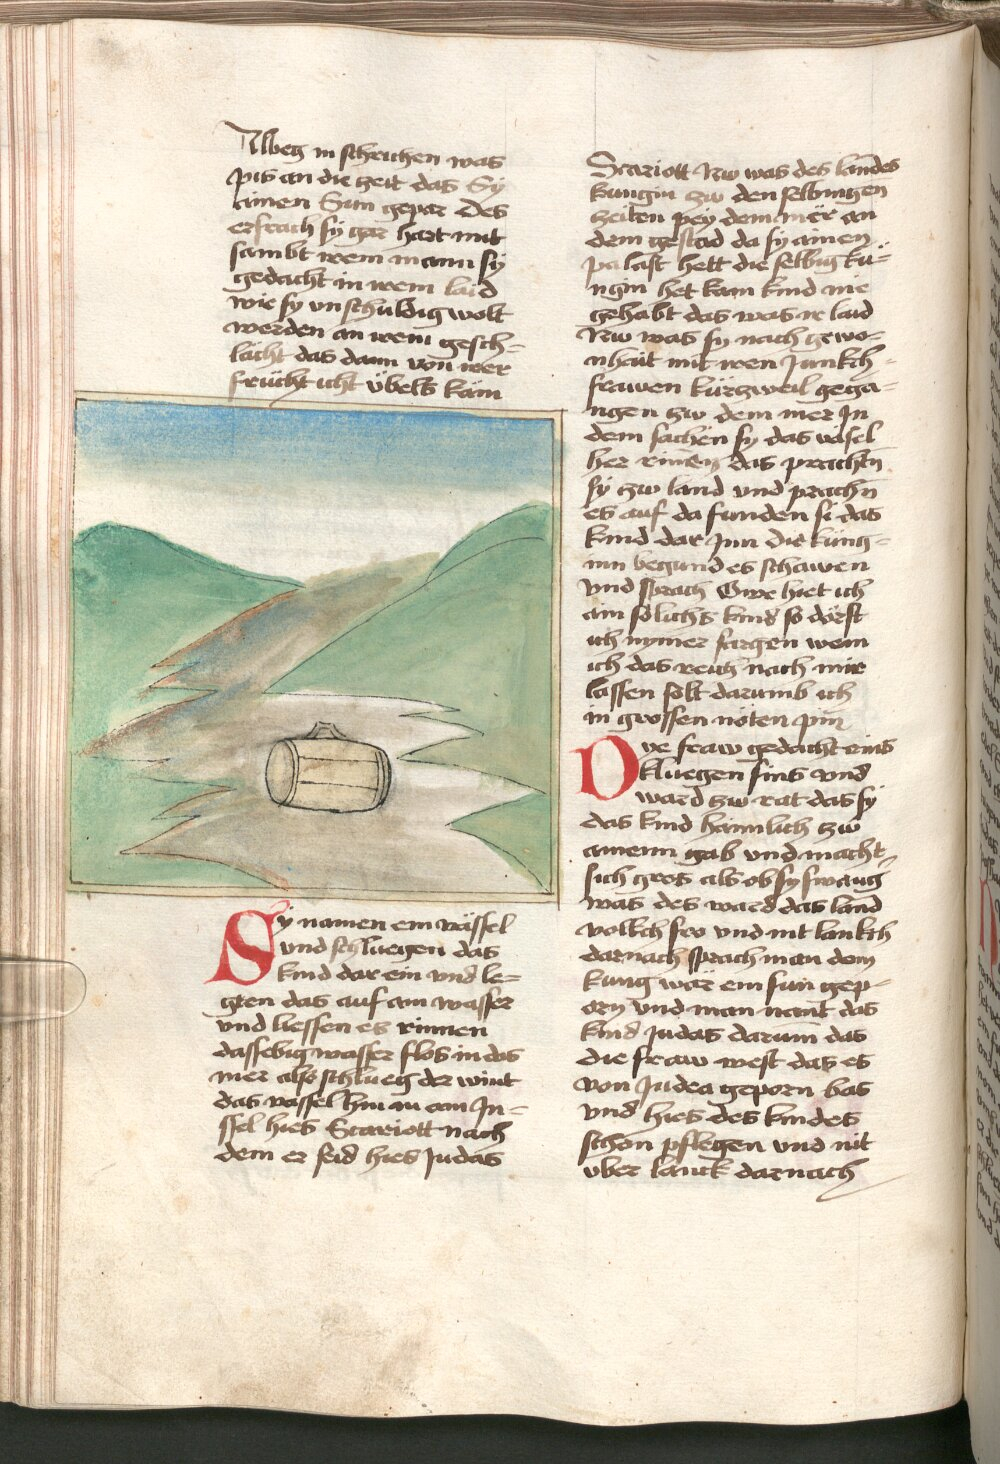 Albeg in schrichen was
pis an die zeit das Sÿ
ainen Sun gepar Des
erschrach sÿ gar hart mit
sambt irem mann sÿ
gedacht in irem laid
wie sÿ vnschuldig wolt
werden an irem gesch=
lächt das dann von irer
frücht icht übels käm
Sÿ namen ein vässel
vnd schluegen das
kind dar ein vnd le=
gten das auf ain wasser
vnd liessen es rinnen
dasselbig wasser flos in das
mer also schlueg der wint
das vässel hin in ain In=
ssel hies Scariott nach
dem er seid hies Judas
Scariott Nw was des landes
kungin zw den selbingen
zeiten pey dem mër an
dem gestad da sÿ ainen
palast hett die selbig kü=
ngin het kain kind nie
gehabt das was ir laid
Nw was sÿ nach gewo=
nhait mit iren Junkch=
frawen kürczweil gega=
ngen zw dem mer In
dem sachen sÿ das väsel
her rinen das prachtn
sÿ zw land vnd prachn
es auf da funden si das
kind dar Inn die küng=
inn begund es schawen
vnd sprach Owe hiet ich
ain sölichs kind so dörft
ich nymer sargen wem
ich das reich nach mir
lassen solt darumb ich
in grossen nöten pin
Dye fraw gedacht eins
kluegen sins vnd
ward zw rat das sÿ
das kind haimlich zw
amenn gab vnd macht
sich gros als ob sÿ swang
was des ward das land
volkch fro vnd nit lankch
darnach sprach man dem
kung wär ein sun gep=
orn vnd man nant das
kind Judas darum das
die fraw west das es
von Judea geporn bas
vnd hies des kindes
schon pflegen vnd nit
vber lanck darnach